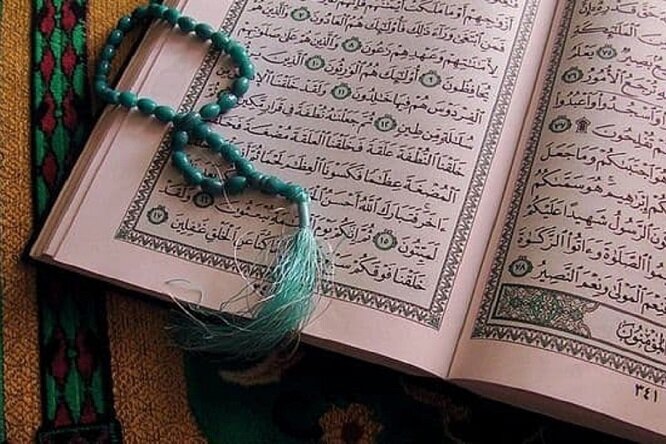 ٱلْمَلَٰٓئِكَةِ
بَصِيرٌ ٧٥ يَعْلَمُ
تُرْجَعُ ٱلْأُمُورُ ٧٦
وَٱسْجُدُوا۟ وَٱعْبُدُوا۟
تُفْلِحُونَ ۩ ٧٧
ٱجْتَبَىٰكُمْ وَمَا جَعَلَ
إِبْرَٰهِيمَ هُوَ سَمَّىٰكُمُ
ٱلرَّسُولُ شَهِيدًا عَلَيْكُمْ
ٱلصَّلَوٰةَ وَءَاتُوا۟ ٱلزَّكَوٰةَ
فَنِعْمَ ٱلْمَوْلَىٰ وَنِعْمَ ٱلنَّصِيرُ ٧٨
٣٤١
أَزْوَٰجِهِمْ أَوْ مَا مَلَكَتْ
فَمَنِ ٱبْتَغَىٰ وَرَآءَ ذَٰلِكَ فَأُو۟لَٰٓئِكَ هُمُ ٱلْعَادُونَ ٧ وَٱلَّذِينَ هُمْ
لِأَمَٰنَٰتِهِمْ وَعَهْدِهِمْ رَٰعُونَ ٨ وَٱلَّذِينَ هُمْ عَلَىٰ صَلَوَٰتِهِمْ
يُحَافِظُونَ ٩ أُو۟لَٰٓئِكَ هُمُ ٱلْوَٰرِثُونَ ١٠ ٱلَّذِينَ
ٱلْفِرْدَوْسَ هُمْ فِيهَا خَٰلِدُونَ ١١ وَلَقَدْ خَلَقْنَا
سُلَٰلَةٍ مِّن طِينٍ ١٢ ثُمَّ جَعَلْنَٰهُ نُطْفَةً فِى قَرَارٍ مَّكِينٍ
خَلَقْنَا ٱلنُّطْفَةَ عَلَقَةً فَخَلَقْنَا ٱلْعَلَقَةَ مُضْغَةً
ٱلْمُضْغَةَ عِظَٰمًا فَكَسَوْنَا ٱلْعِظَٰمَ لَحْمًا
ءَاخَرَ فَتَبَارَكَ ٱللَّهُ أَحْسَنُ
لَمَيِّتُونَ ١٥ ثُمَّ إِنَّكُمْ يَوْمَ تُبْعَثُونَ ١٦ وَلَقَدْ
خَلَقْنَا فَوْقَكُمْ كُنَّا عَنِ ٱلْخَلْقِ غَٰفِلِينَ ١٧